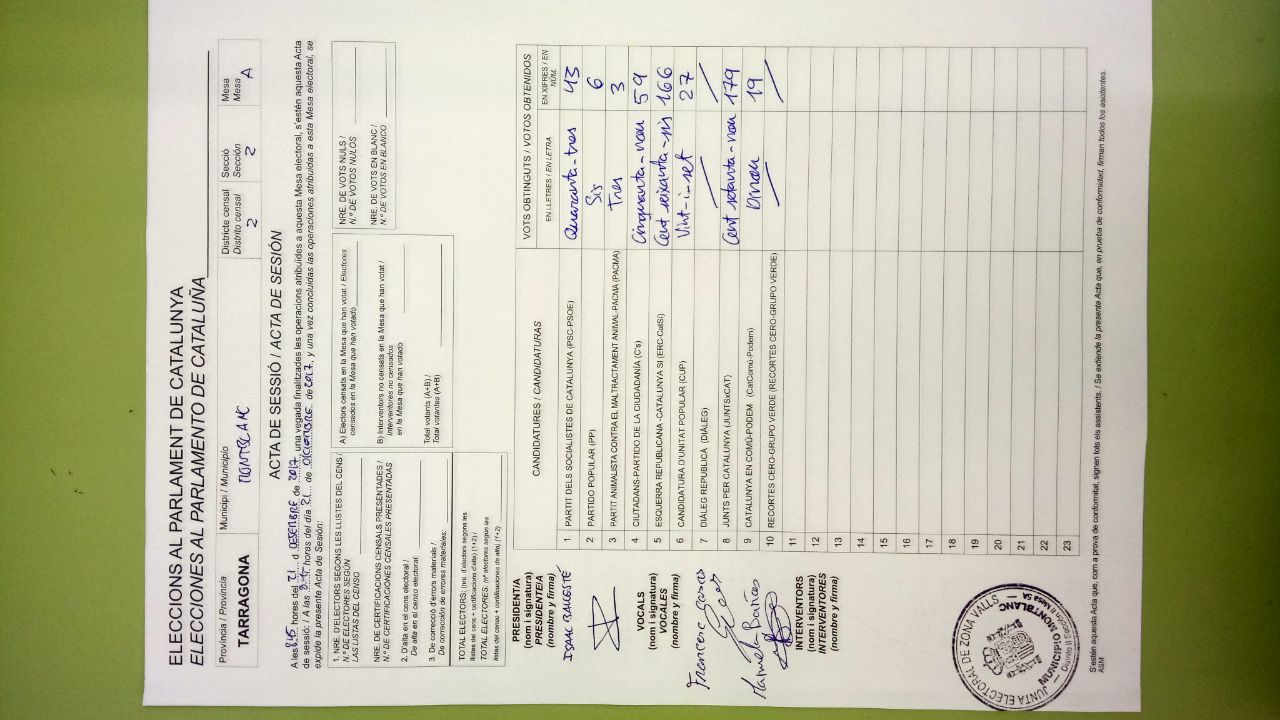 ELECCIONS AL PARLAMENT DE CATALUNYA
ELECCIONES AL PARLAMENTO DE CATALUÑA
Província / Provincia
TARRAGONA
Municipi / Municipio
MONTBLANC
Districte censal
Distrito censal
2
Secció
Sección
2
Mesa
Mesa
A
ACTA DE SESSIÓ / ACTA DE SESIÓN
A les 8'45 hores del 21 d DESEMBRE de 2017, una vegada finalitzades les operacions atribuïdes a aquesta Mesa electoral, s'estén aquesta Acta
de sessió. / A las horas del día 21 de DICIEMBRE de 2017, y una vez concluidas las operaciones atribuidas a esta Mesa electoral, se
expide la presente Acta de Sesión:
1. NRE. D'ELECTORS SEGONS LES LLISTES DEL CENS /
N.º DE ELECTORES SEGÚN
LAS LISTAS DEL CENSO
NRE. DE CERTIFICACIONS CENSALS PRESENTADES /
N.º DE CERTIFICACIONES CENSALES PRESENTADAS
2. D'alta en el cens electoral /
De alta en el censo electoral:
3. De correcció d'errors materials /
De corrección de errores materiales:
TOTAL ELECTORS: (nre. d'electors segons les
llistes del cens + certificacions d'alta) (1+2) /
TOTAL ELECTORES: (nº electores según las
listas del censo + certificaciones de alta). (1+2)
A) Electors censats en la Mesa que han votat / Electores
censados en la Mesa que han votado
B) Interventors no censats en la Mesa que han votat /
Interventores no censados
en la Mesa que han votado
Total votants (A+B) /
Total votantes (A+B)
NRE. DE VOTS NULS /
N.º DE VOTOS NULOS
NRE. DE VOTS EN BLANC /
N.º DE VOTOS EN BLANCO
PRESIDENT/A
(nom i signatura)
PRESIDENTE/A
(nombre y firma)
ISAAC BALLESTÉ
VOCALS
(nom i signatura)
VOCALES
(nombre y firma)
Francesc
Manuela
INTERVENTORS
(nom i signatura)
INTERVENTORES
(nombre y firma)
CANDIDATURES / CANDIDATURAS
VOTS OBTINGUTS / VOTOS OBTENIDOS
EN LLETRES / EN LETRA
EN XIFRES / EN NÚM.
1 PARTIT DELS SOCIALISTES DE CATALUNYA (PSC-PSOE) Quaranta-tres 43
2 PARTIDO POPULAR (PP) Sis 6
3 PARTIT ANIMALISTA CONTRA EL MALTRACTAMENT ANIMAL-PACMA (PACMA) Tres 3
4 CIUTADANS-PARTIDO DE LA CIUDADANÍA (C's) Cinquanta-nou 59
5 ESQUERRA REPUBLICANA - CATALUNYA SI (ERC-CatSí) Cent seixanta-sis 166
6 CANDIDATURA D'UNITAT POPULAR (CUP) Vint-i-set 27
7 DIÀLEG REPUBLICÀ (DIÀLEG)
8 JUNTS PER CATALUNYA (JUNTSxCAT) Cent setanta-nou 179
9 CATALUNYA EN COMÚ-PODEM (CatComú-Podem) Dinou 19
10 RECORTES CERO-GRUPO VERDE (RECORTES CERO-GRUPO VERDE)
11
12
13
14
15
16
17
18
19
20
21
22
23
JUNTA ELECTORAL DE ZONA VALLS
MUNICIPIO MONTBLANC
S'estén aquesta Acta que, com a prova de conformitat, signen tots els assistents. / Se extiende la presente Acta que, en prueba de conformidad, firman todos los asistentes.
ASM